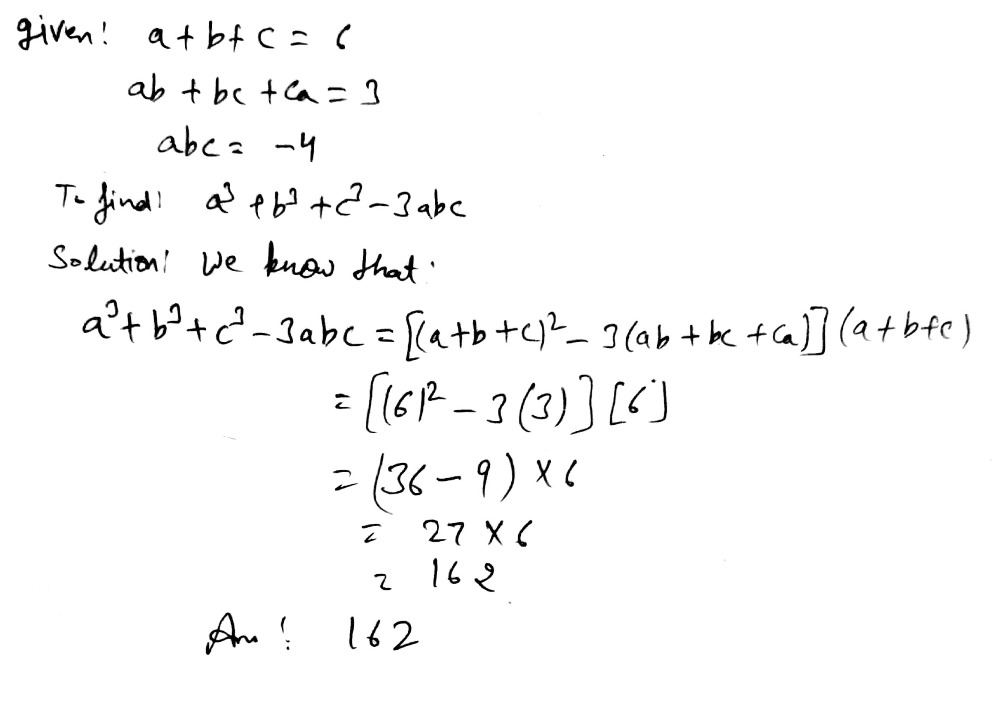 given: a + b + c = 6
ab + bc + ca = 3
abc = -4
To find: a³ + b³ + c³ - 3abc
Solution: We know that:
a³ + b³ + c³ - 3abc = [(a+b+c)² - 3(ab + bc + ca)] (a+b+c)
= [(6)² - 3(3)] [6]
= (36 - 9) × 6
= 27 × 6
= 162
Ans: 162